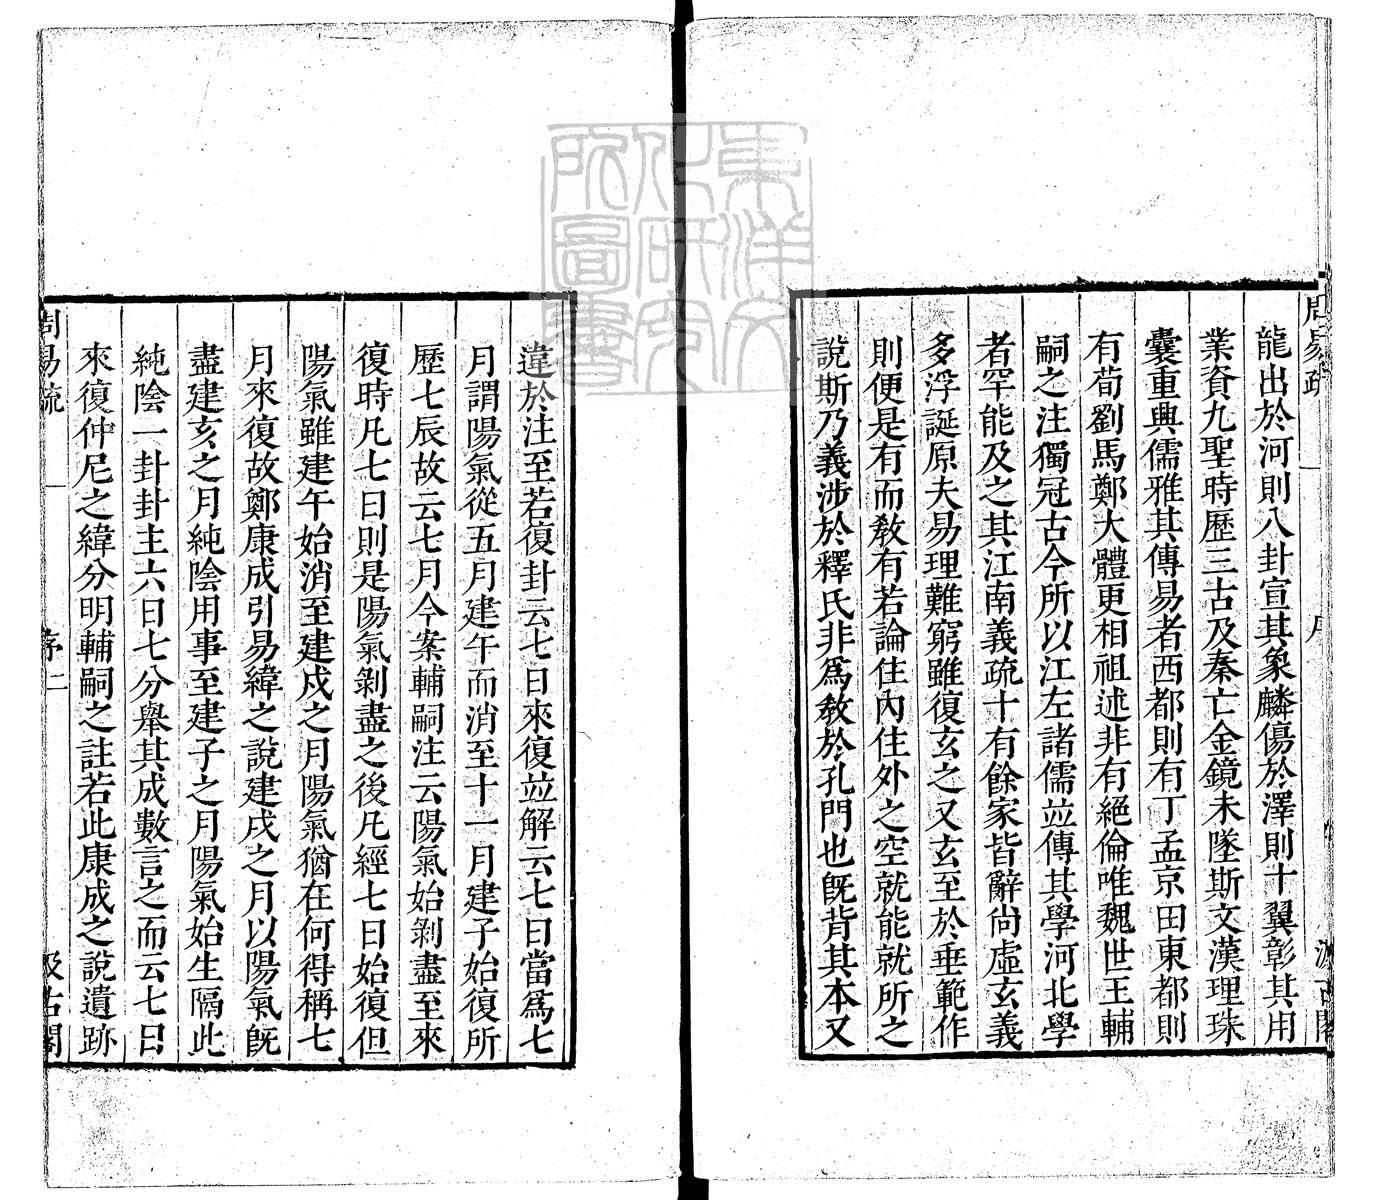 周易疏 序 汲古閣
龍出於河則八卦宣其象麟傷於澤則十翼彰其用
業資九聖時歷三古及秦亡金鏡未墜斯文漢理珠
囊重典儒雅其傳易者西都則有丁孟京田東都則
有荀劉馬鄭大體更相祖述非有絕倫唯魏世王輔
嗣之注獨冠古今所以江左諸儒並傳其學河北學
者罕能及之其江南義疏十有餘家皆辭尚虛玄義
多浮誕原夫易理難窮雖復玄之又玄至於垂範作
則便是有而敎有若論住內住外之空就能就所之
說斯乃義涉於釋氏非爲敎於孔門也旣背其本又
違於注至若復卦云七日來復並解云七日當爲七
月謂陽氣從五月建午而消至十一月建子始復所
歷七辰故云七月今案輔嗣注云陽氣始剝盡至來
復時凡七日則是陽氣剝盡之後凡經七日始復但
陽氣雖建午始消至建戌之月陽氣猶在何得稱七
月來復故鄭康成引易緯之說建戌之月以陽氣旣
盡建亥之月純陰用事至建子之月陽氣始生隔此
純陰一卦卦主六日七分舉其成數言之而云七日
來復仲尼之緯分明輔嗣之註若此康成之說遺跡
周易疏 序 二 汲古閣
東洋文化研究所圖書